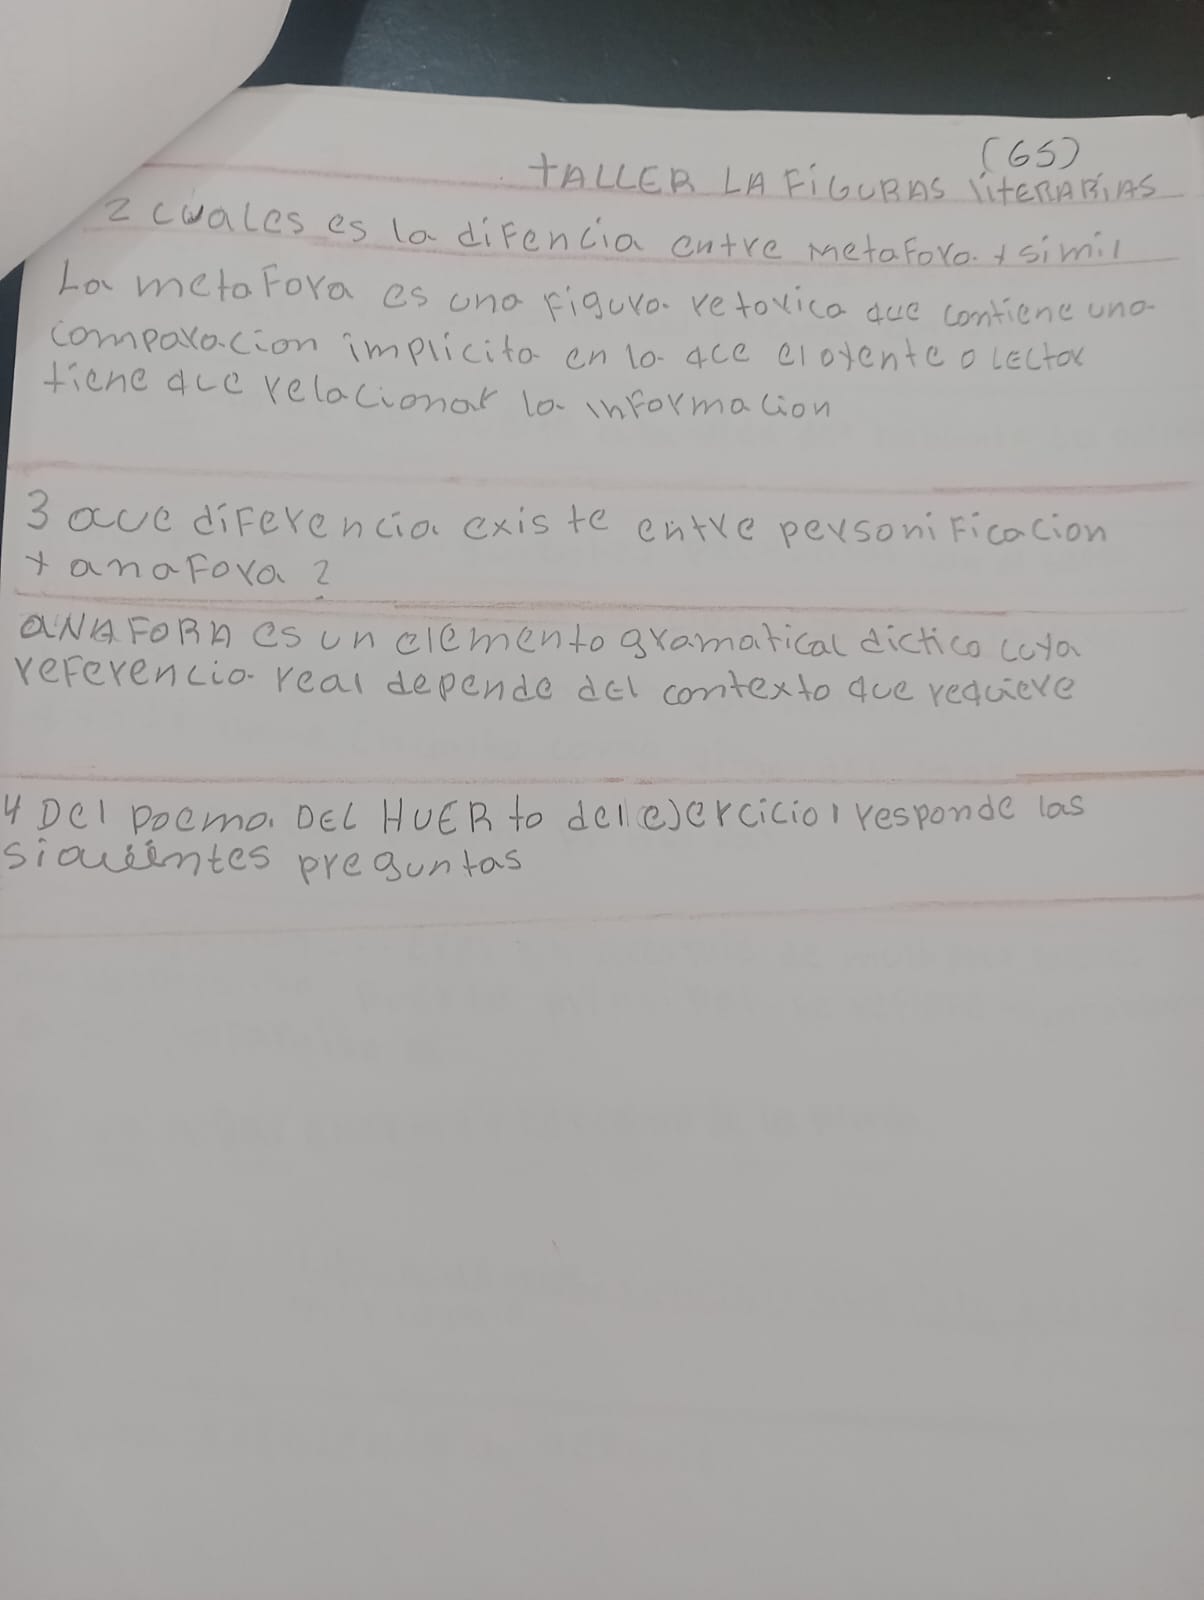 (65)
TALLER LA FiGURAS liTERARiAS
2 cuales es la difencia entre metafora y simil
La metafora es una figura retorica que contiene una
comparacion implicita en la qce el oyente o lector
tiene que relacionar la informacion
3 que diferencia existe entre personificacion
y anafora ?
aNAFORA es un elemento gramatical dictico cuya
referencia real depende del contexto que requiere
4 Del poema DEL HUERto del ejercicio 1 responde las
siguientes preguntas